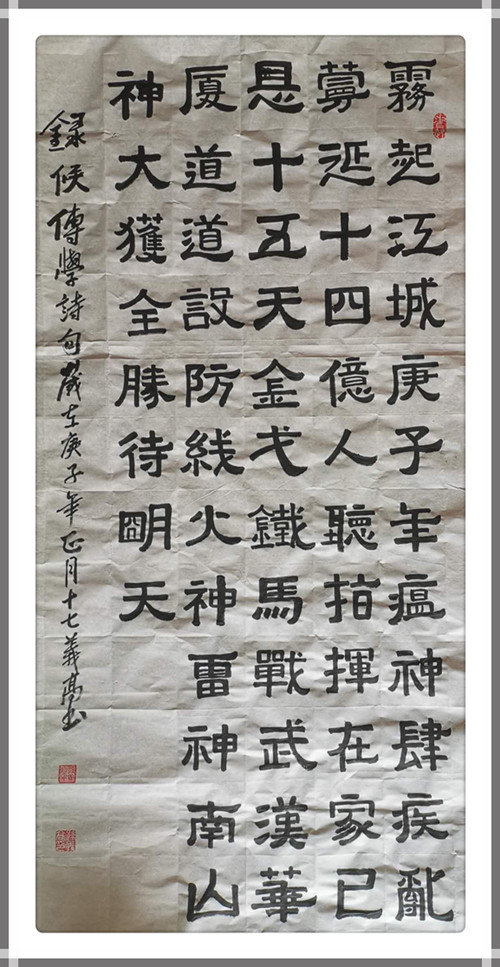 霧起江城庚子年瘟神肆疾亂
蔓延十四億人聽指揮在家已
息十五天金戈鐵馬戰武漢華
厦道道設防线火神雷神南山
神大獲全勝待明天
錄候傳學詩句歲在庚子年正月十七義高书